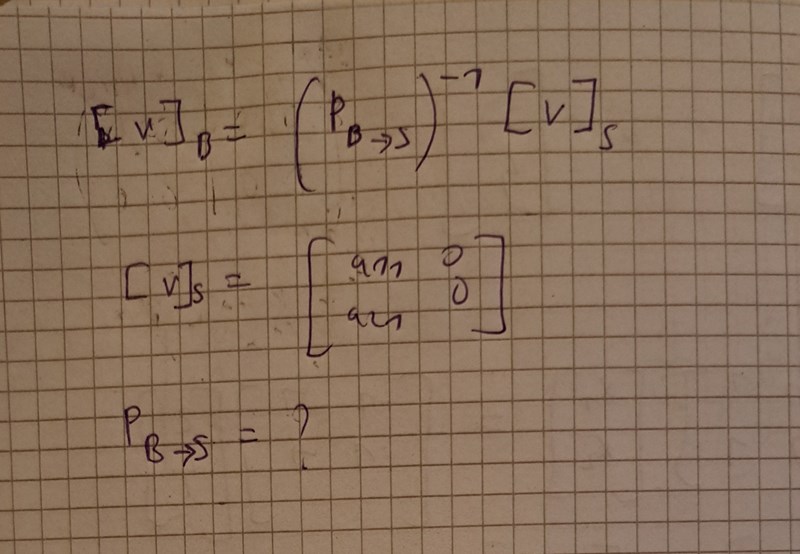 [v]_B = (P_{B→S})^{-1} [v]_S
[v]_S = [a_{11} 0
a_{21} 0]
P_{B→S} = ?